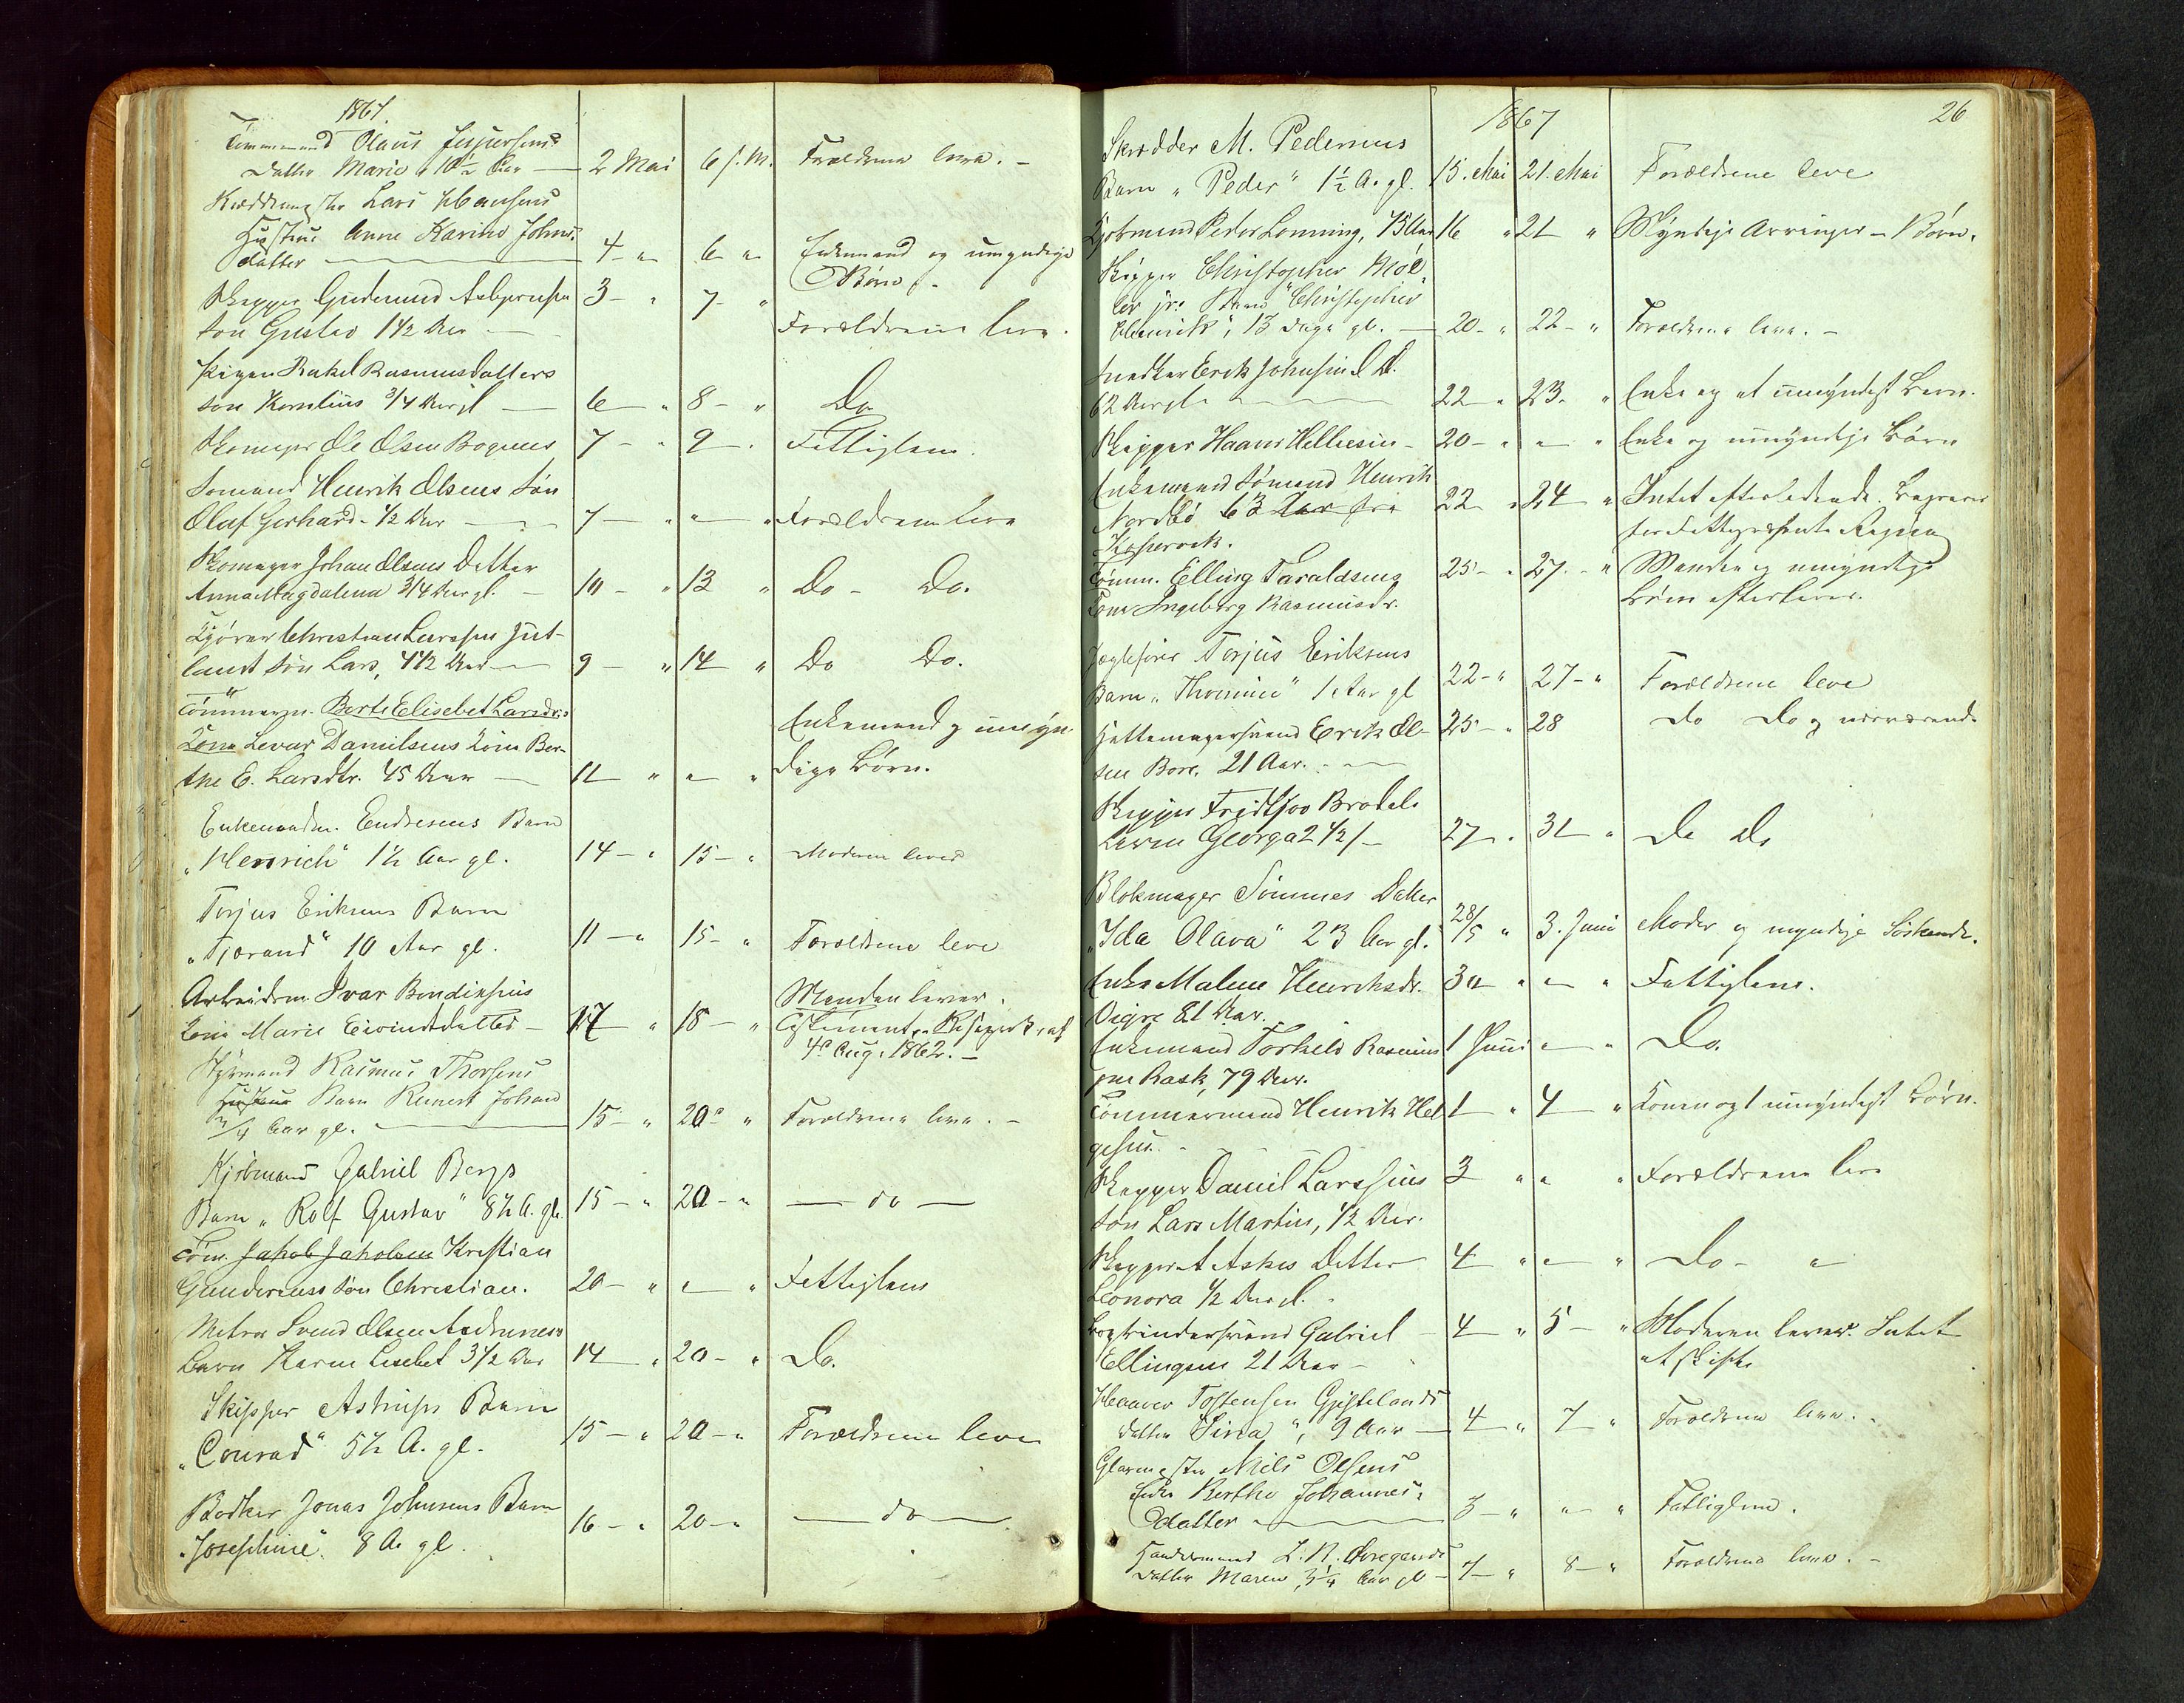 1867.
Tømmermand Olaus Jespersens
Datter Marie, 10½ Aar — 2 Mai 6 f. M. Forældrene leve. —
Lars Hansens
Hustru Anne Karine Johns-
datter — 4 - " 6 " Enkemand og umyndige
Børn.
Skipper Gudmund Asbjørnsen 3 - " 7 - "
søn Gustav 1½ Aar — Forældrene leve.
Pigen Rakel Rasmusdatters
søn Kornelius 3/4 Aar gl — 6 - " 8 - " Do
Skomager Ole Olsen Bognes 7 - " 9 - . Fattiglem.
Sømand Henrik Olsens Søn
Olaf Gerhard - ½ Aar — 7 - " " - " Forældrene leve
Skomager Johan Olsens Datter
Anna Magdalena 3/4 Aar gl. — 10 - " 13 " Do - Do.
Kjører Christian Larssen Jut-
lands søn Lars, 4½ Aar — 9 - " 14 " Do Do.
Tømmerm. Berte Elisebet Larsdr.s
Kone Levar Danielsens Kone Ber- Enkemand og umyn-
the E. Larsdtr. 45 Aar — 11 - " " - " dige Børn.
Enkemadm. Endresens Barn
"Henrich" 1½ Aar gl. 14 - " 15 - " Moderen lever
Torjus Eriksens Barn
"Tjerand" 10 Aar gl. 11 - " 15 - " Forældrene leve
Arbeidsm. Ivar Bendiksens Manden lever.
Kone Marie Eivindsdatter — 17 - " 18 - " Testament. Reskript af
4de Aug. 1862. —
Styrmand Rasmus Thorsens
Hustrue Barn Reinert Johan
3/4 Aar gl. — 15 - " 20 - " Forældrene leve. —
Kjøbmand Gabriel Bergs
Barn "Rolf Gustav" 8½ A. gl. 15 - " 20 - " — do —
Tøm. Jakob Jakobsen Kristian
Gundersens søn Christian. 20 - " " - " Fattiglem
Matros Svend Olsen Andrunes's
barn Karen Lisebet 3½ Aar 14 - " 20 - " Do.
Skipper Astrups Barn
"Conrad" 5½ A. gl. 15 - " 20 - " Forældrene leve
Bødker Jonas Johnsens Barn
"Josephine" 8 A. gl. 16 - " 20 - " — do —
1867 26
Skrædder M. Pedersens
Barn "Peder" 1½ A. gl. 15. Mai 21. Mai Forældrene leve
Kjøbmand Peder Lonning, 75 Aar 16 " 21 " Myndige Arvinger - Børn.
Skipper Christopher Møl-
ler jr. Barn "Christopher
Henrik", 13 Dage gl. — 20 - " 22 - " Forældrene leve. —
Snedker Erik Johnsen d. Æ.
62 Aar gl. — 22 - " 23 - " Enke og et umyndigt Barn.
Skipper Haaver Helliesen - 20 - " " - " Enke og umyndige Børn
Enkemand Sømand Henrik
Nordbø 63 Aar fra 22 " 24 " Intet efterladende. Begraves
Kopervik. for Fattigvæsenets Regning
Tømm. Elling Taraldsens 25 - " 27 - " Manden og umyndige
Kone Ingeborg Rasmusdr. Børn efterlever.
Jægtefører Torjus Eriksens
Barn "Thomine" 1 Aar gl 22 - " 27 - " Forældrene leve
Hattemagersvend Erik Ol- 25 - " 28 Do Do og nærværende
sen Bore, 21 Aar. —
Skipper Fridtjov Brodals
Barn Georga 2½ / - 27 - " 31 - " Do Do
Blokmager Sømmes Datter
"Ida Olava" 23 Aar gl. 28/5 " 3. Juni Moder og myndige Søskende.
Enke Malene Henriksdr. 30 " " - " Fattiglem.
Vigre 81 Aar.
Enkemand Torkeld Rasmus- 1 Juni " - " Do.
sen Rask, 79 Aar.
Tømmermand Henrik Hel- 1 - " 4 - " Konen og 1 umyndigt Børn.
gesen. -
Skipper Daniel Larssens 3 " " " Forældrene leve
søn Lars Martin, ½ Aar.
Skipper A Askes Datter 4 - " " - " Do - "
Leonora ½ Aar gl. -
Bogtrykkersvend Gabriel - 4 - " 5 - " Moderen lever. Intet
Ellingsen 21 Aar - at skifte
Haaver Tostensen Gjestelands
datter "Sina", 9 Aar — 4 " 7 " Forældrene leve. -
Glarmester Niels Olsens
Enke Berthe Johannes-
datter — 3 - " " - " Fattiglem.
Handelsmand L. N. Ovregaards
datter Maren, 3¼ Aar gl - 7 - " 8 - " Forældrene leve. -